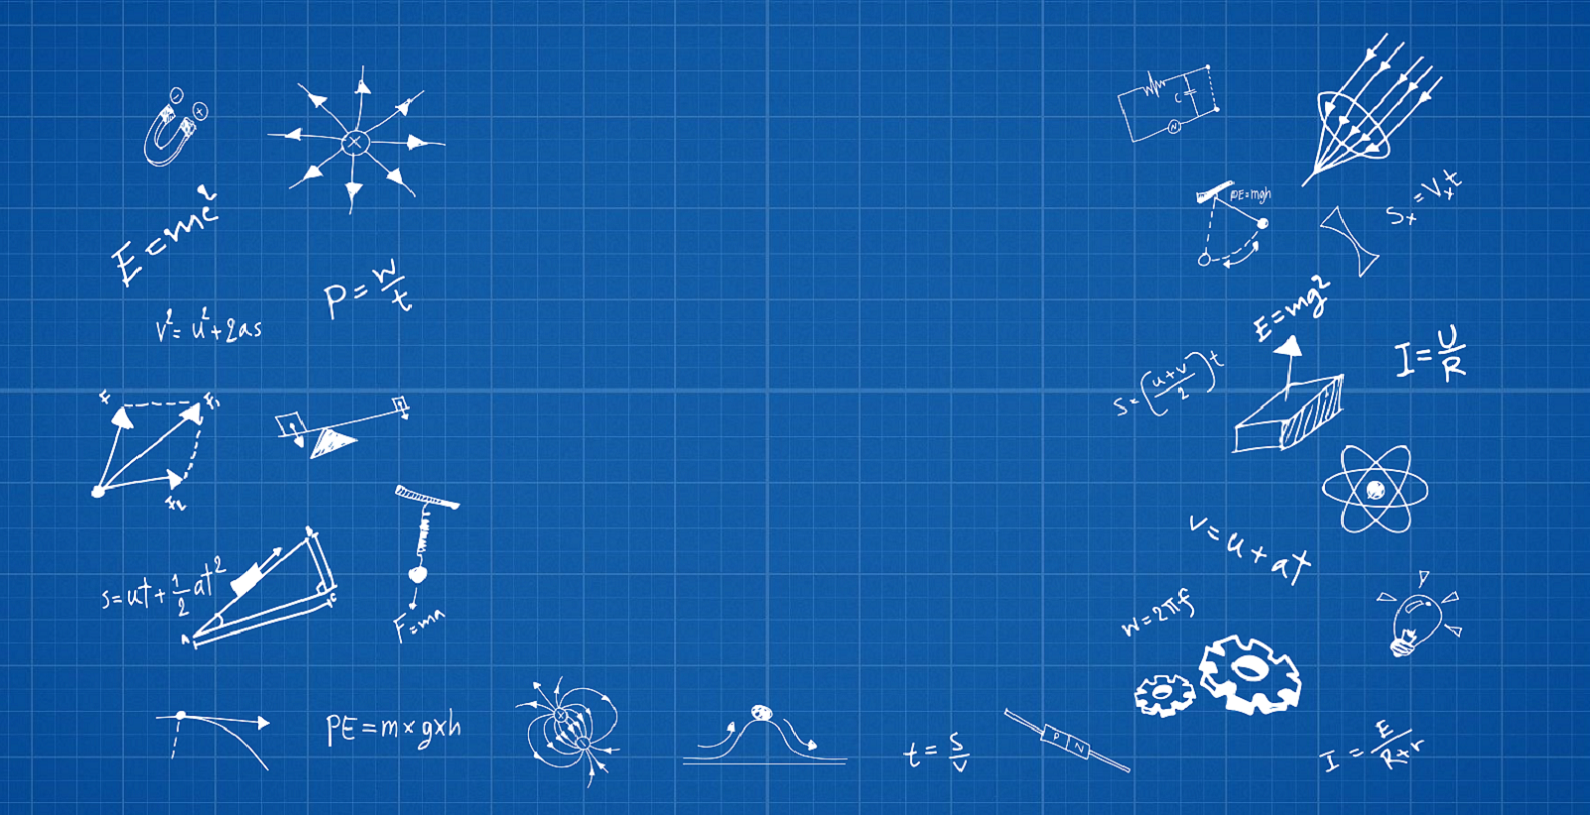 E=mc²
P=W/t
V²=u²+2as
F₁
F₂
S=ut+1/2at²
A
C
F=ma
PE=m×g×h
t=S/V
P N
C
N
PE=mgh
Sₓ=Vₓt
E=mg²
I=U/R
S=(u+v/2)t
V=u+at
W=2πf
I=E/R×r